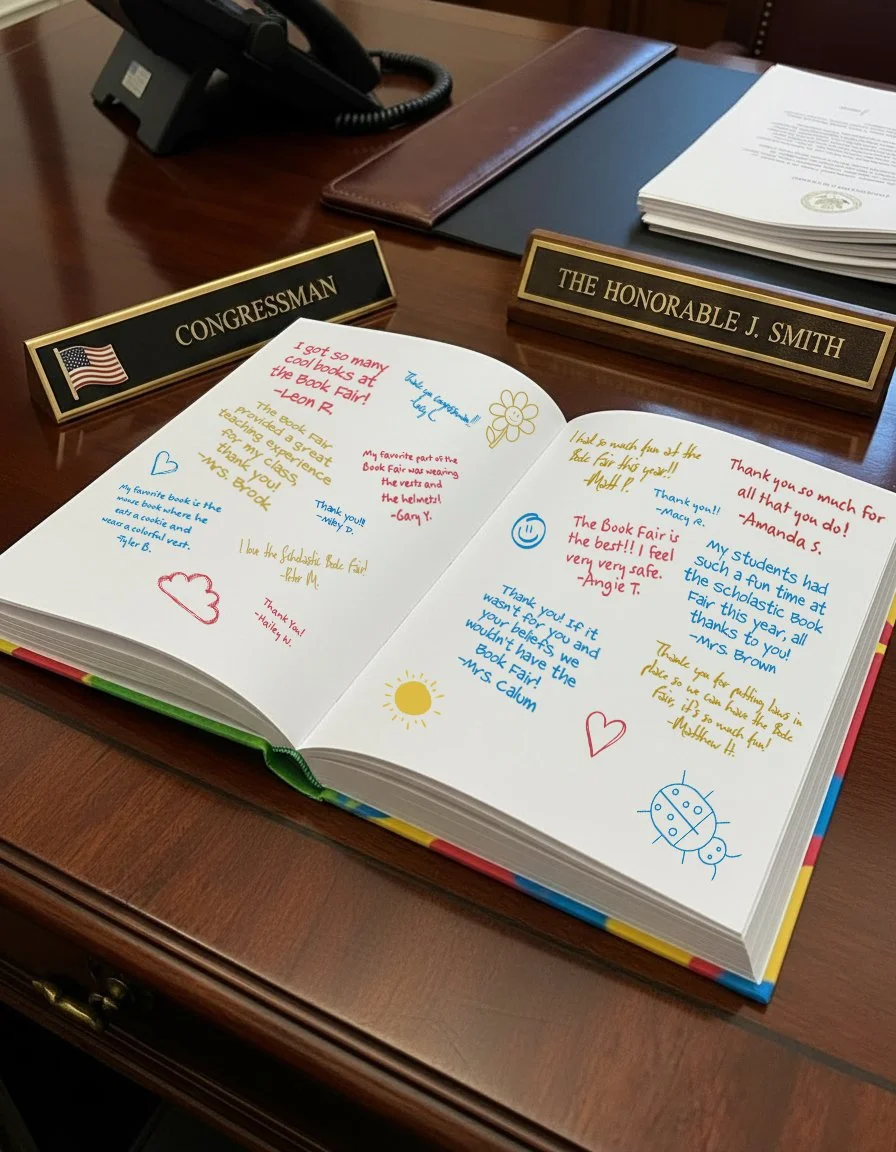 CONGRESSMAN
THE HONORABLE J. SMITH
I got so many
cool books at
the Book Fair!
-Leon R.
Thank you Congressman!!
The Book Fair
provided a great
teaching experience
for my class,
thank you!
-Mrs. Brook
My favorite part of the
Book Fair was wearing
the vests and
the helmets!
-Gary Y.
My favorite book is the
mouse book where he
eats a cookie and
wears a colorful vest.
-Tyler B.
Thank you!!
-Miley D.
I love the Scholastic Book Fair!
-Peter M.
Thank You!
-Hailey W.
I had so much fun at the
Book Fair this year!!
-Matt P.
Thank you!!
-Macy R.
Thank you so much for
all that you do!
-Amanda S.
The Book Fair is
the best!! I feel
very very safe.
-Angie T.
My students had
such a fun time at
the Scholastic Book
Fair this year, all
thanks to you!
-Mrs. Brown
Thank you! If it
wasn't for you and
your beliefs, we
wouldn't have the
Book Fair!
-Mrs. Calum
Thank you for putting laws in
place so we can have the Book
Fair, it's so much fun!
-Matthew H.